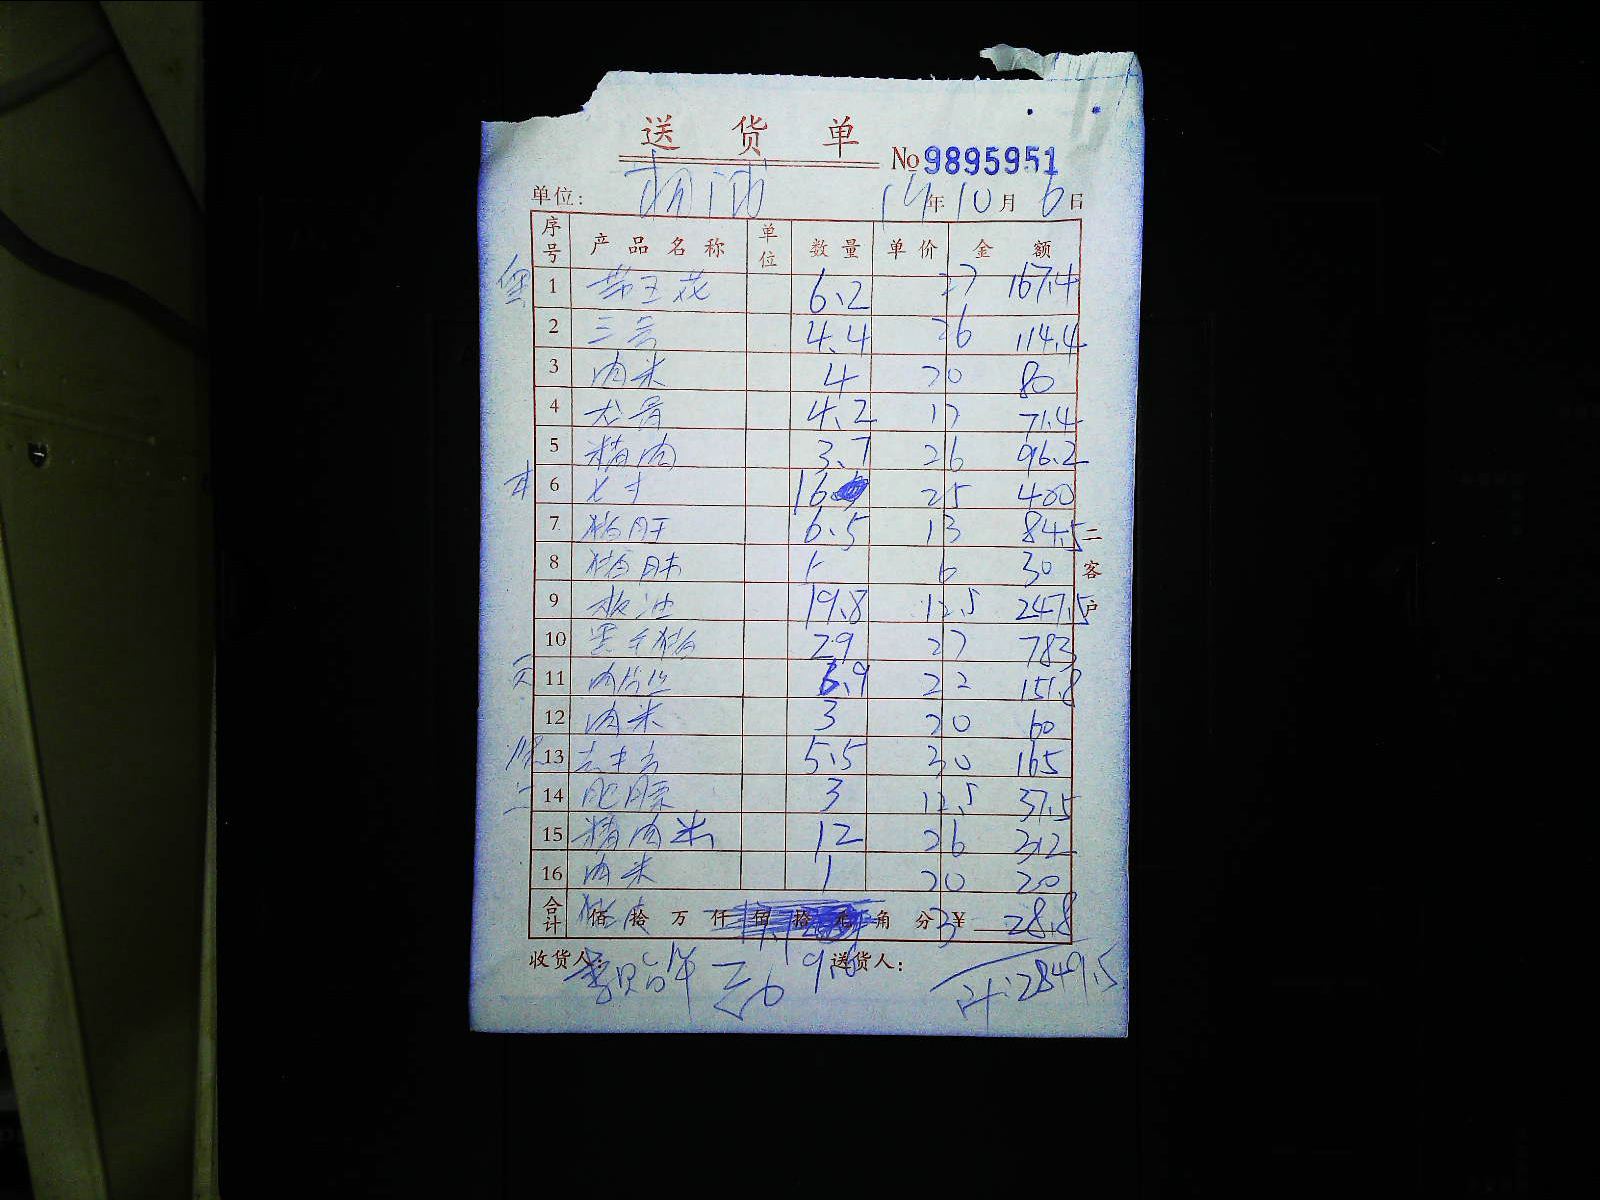 送 货 单
№ 9895951
单位: 14年10月6日
序号 产品名称 单位 数量 单价 金额
1 带王花 6.2 27 167.4
2 三号 4.4 26 114.4
3 肉米 4 20 80
4 尤骨 4.2 17 71.4
5 精肉 3.7 26 96.2
6 七寸 16 25 400
7 猪肝 6.5 13 84.5
8 猪肺 6 30
9 板油 19.8 12.5 247.5
10 黑千猪 29 27 783
11 肉片丝 6.9 22 151.8
12 肉米 3 20 60
13 5.5 30 165
14 肥膘 3 12.5 37.5
15 精肉米 12 26 312
16 肉米 1 20 20
合计 佰 拾 万 仟 佰 拾 元 角 分 ¥
猪皮 9.6 3 28.8
收货人: 送货人:
计:2849.5
二客户